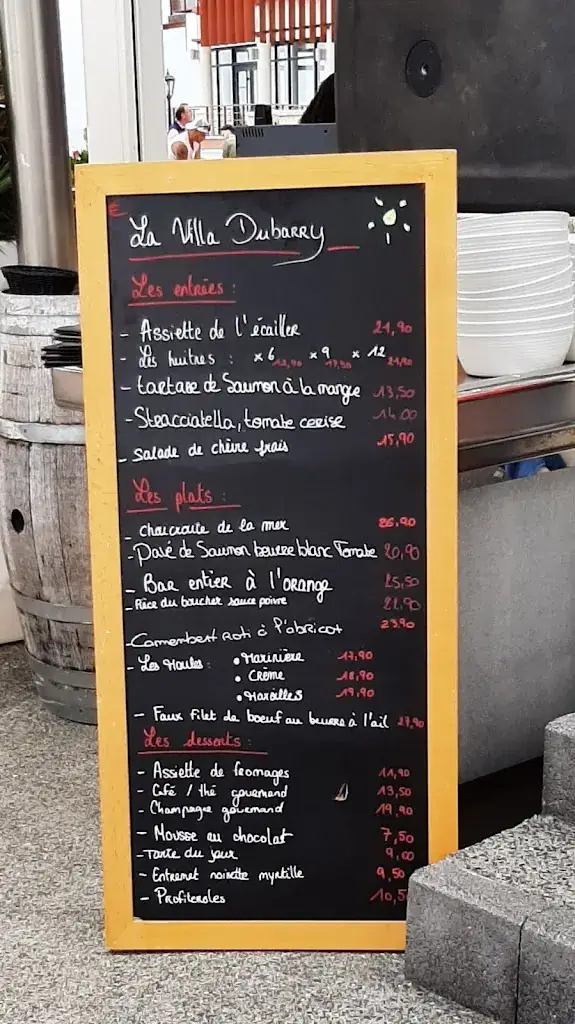 €
La Villa Dubarry
Les entrées :
- Assiette de l'écailler 21,90
- Les huitres : x 6 12,90 x 9 17,50 x 12 21,90
- tartare de Saumon à la mangue 13,50
- Stracciatella, tomate cerise 14,00
- Salade de chèvre frais 15,90
Les plats :
- Choucroute de la mer 26,90
- Pavé de Saumon beurre blanc Tomate 20,90
- Bar entier à l'orange 25,50
- Pièce du boucher sauce poivre 22,90
- Camembert roti à l'abricot 23,90
- Les Moules : • Marinière 17,90
• Crème 18,90
• Maroilles 19,90
- Faux filet de boeuf au beurre à l'ail 27,90
Les desserts :
- Assiette de fromages 11,90
- Café / thé gourmand 13,50
- Champagne gourmand 19,90
- Mousse au chocolat 7,50
- Tarte du jour 9,00
- Entremet noisette myrtille 9,50
- Profiteroles 10,5